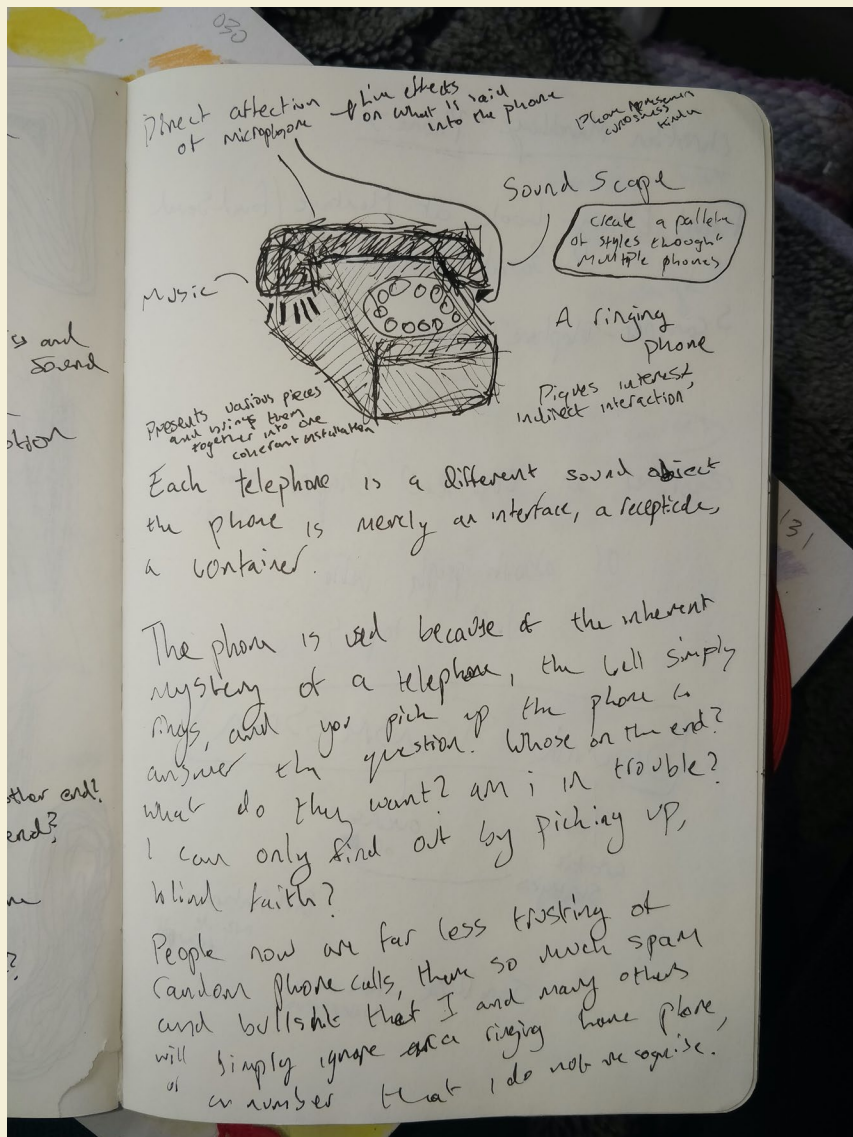 030
Direct affection
of microphone
Live effects
on what is said
into the phone
Phone
kinda
Sound Scape
Create a pallette
of styles though
Multiple phones
Music
A ringing
phone
Piques interest,
indirect interaction
Presents various pieces
and brings them
together into one
coherent installation
Each telephone is a different sound object
the phone is merely an interface, a recepticle,
a container.
The phone is used because of the inherent
mystery of a telephone, the bell simply
rings, and you pick up the phone to
answer the question. Whose on the end?
what do they want? am i in trouble?
I can only find out by picking up,
blind faith?
People now are far less trusting of
random phone calls, there so much spam
and bullshit that I and many others
will simply ignore a ringing home phone,
or a number that I do not recognise.
ss and
Sound
otion
other end?
end?
?
131